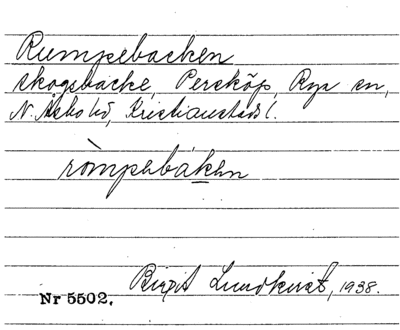 Rumpebacken
skogsbacke, Persköp, Rya sn,
N. Åsbo hd, Kristianstads l.
ròmpebáken
Birgit Lundkvist, 1938.
Nr 5502.